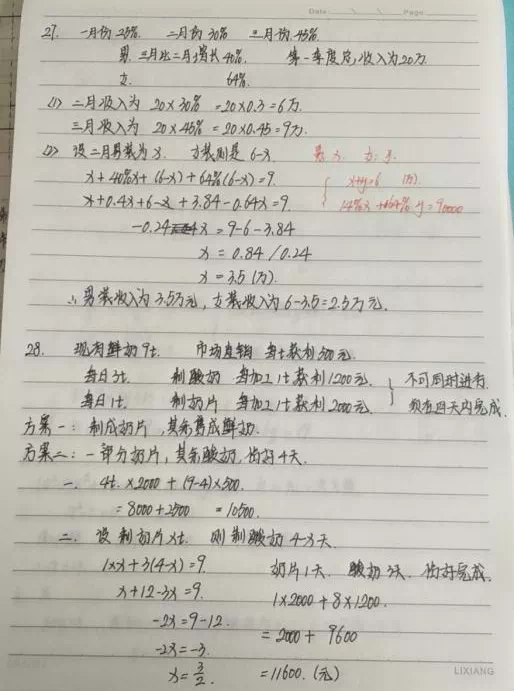 Date. Page.
27. 一月份25% 二月份30% 三月份45%
男 三月比二月增长40% 第一季度总收入为20万
女 64%
(1) 二月收入为 20×30% =20×0.3=6万
三月收入为 20×45% =20×0.45=9万
(2) 设二月男装为x. 女装则是 6-x
男:x 女:y.
x+40%x+(6-x)+64%(6-x)=9.
x+y=6 (万)
x+0.4x+6-x+3.84-0.64x=9
14%x +164% y=90000
-0.24x=9-6-3.84
x=0.84/0.24
x=3.5(万).
∴男装收入为3.5万元,女装收入为6-3.5=2.5万元.
28. 现有鲜奶9t. 市场直销 每t获利500元.
每日3t. 制酸奶 每加工1t获利1200元. 不可同时进行
每日1t. 制奶片 每加工1t获利2000元. 须在四天内完成.
方案一: 制成奶片,其余售成鲜奶.
方案二: 一部分奶片,其余酸奶,恰好4天.
一. 4t.×2000+(9-4)×500.
=8000+2500 =10500.
二. 设制奶片xt. 则制酸奶4-x天.
1×x+3(4-x)=9. 奶片1天. 酸奶3天. 恰好完成.
x+12-3x=9. 1×2000+8×1200.
-2x=9-12. =2000+9600
-2x=-3.
x=3/2. =11600.(元)
LIXIANG